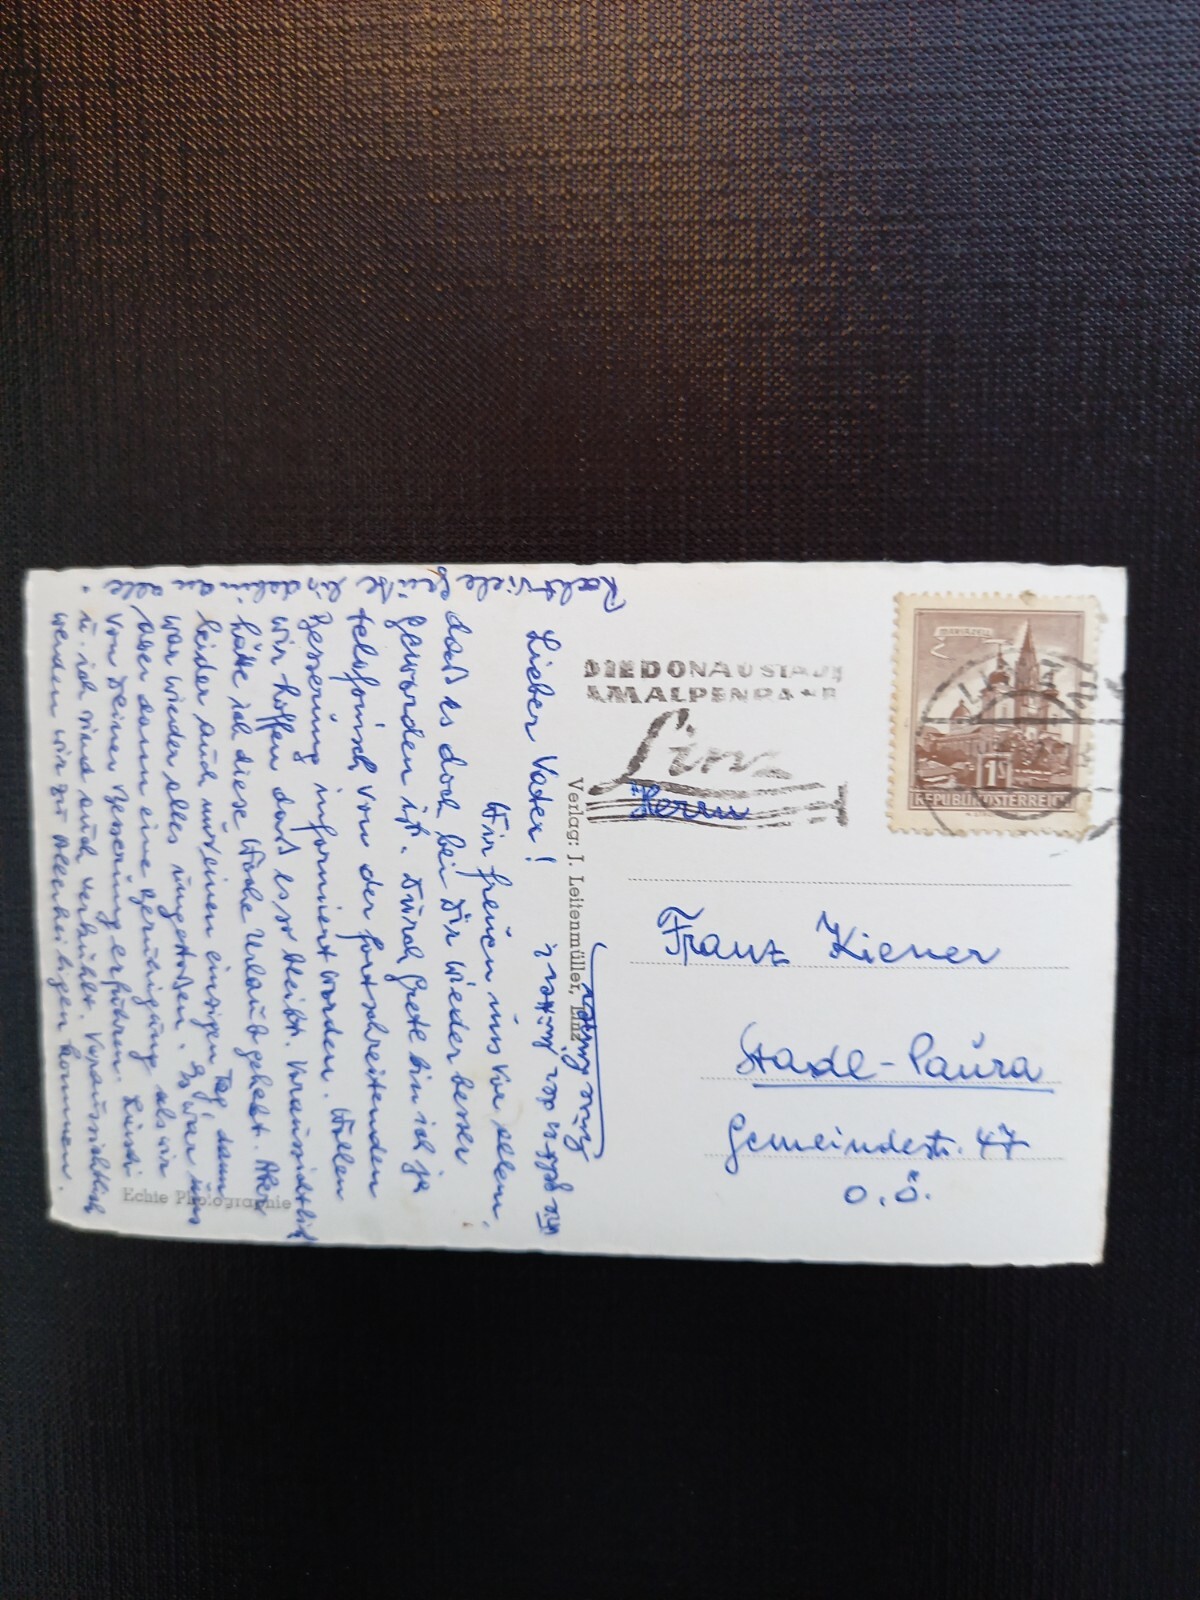 Lieber Vater!
Wir freuen uns vor allem,
daß es doch bei Dir wieder besser
geworden ist. Durch Grete bin ich ja
telefonisch von der fortschreitenden
Besserung informiert worden. Wollen
wir hoffen daß es so bleibt. Voraussichtlich
hätte ich diese Woche Urlaub gehabt. Aber
leider auch nur einen einzigen Tag, dann
war wieder alles umgestoßen. Es war uns
aber dann eine Beruhigung als wir
von Deiner Besserung erfuhren. Luisi
u. ich sind auch verkühlt. Voraussichtlich
werden wir zu Allerheiligen kommen.
Recht viele Grüße bis dahin an alle
Echte Photographie
Verlag: J. Leitenmüller, Linz
DIE DONAUSTADT
AM ALPENRAND
Linz
MARIAZELL
1S
REPUBLIK ÖSTERREICH
Herrn
Franz Kiener
Stadl-Paura
Gemeindestr. 47
O.Ö.